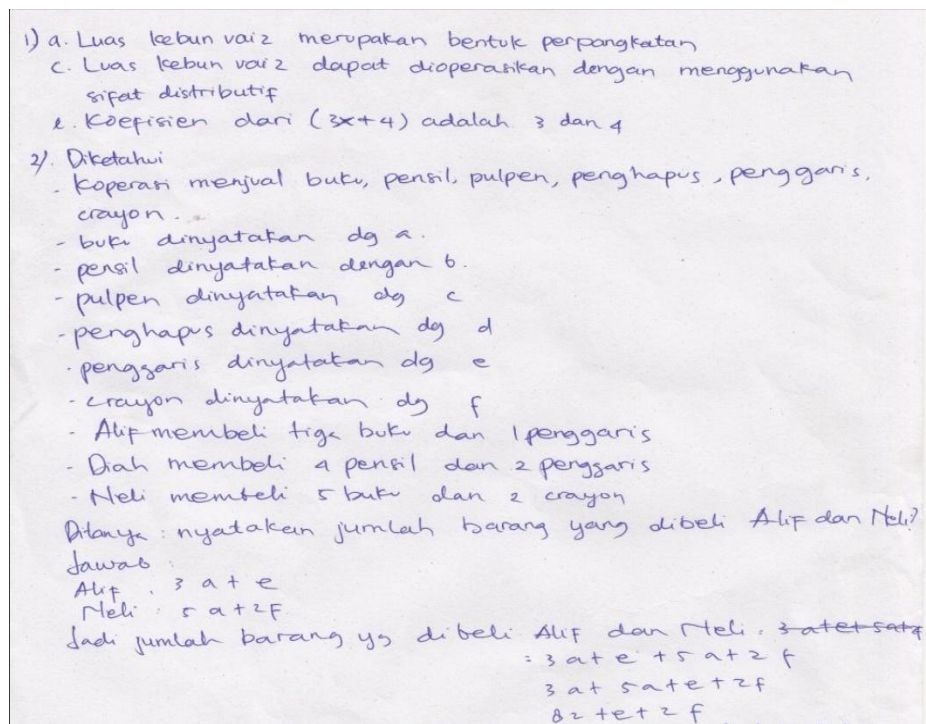 1) a. Luas kebun vaiz merupakan bentuk perpangkatan
c. Luas kebun vaiz dapat dioperasikan dengan menggunakan
sifat distributif
e. Koefisien dari (3x+4) adalah 3 dan 4
2). Diketahui
- Koperasi menjual buku, pensil, pulpen, penghapus, penggaris,
crayon.
- buku dinyatakan dg a.
- pensil dinyatakan dengan b.
- pulpen dinyatakan dg c
- penghapus dinyatakan dg d
- penggaris dinyatakan dg e
- crayon dinyatakan dg f
- Alif membeli tiga buku dan 1 penggaris
- Diah membeli 4 pensil dan 2 penggaris
- Neli membeli 5 buku dan 2 crayon
Ditanya : nyatakan jumlah barang yang dibeli Alif dan Neli?
Jawab :
Alif : 3a+e
Neli : 5a+2f
Jadi jumlah barang yg dibeli Alif dan Neli : 3a+e+5a+
= 3a+e+5a+2f
3a+5a+e+2f
8a+e+2f